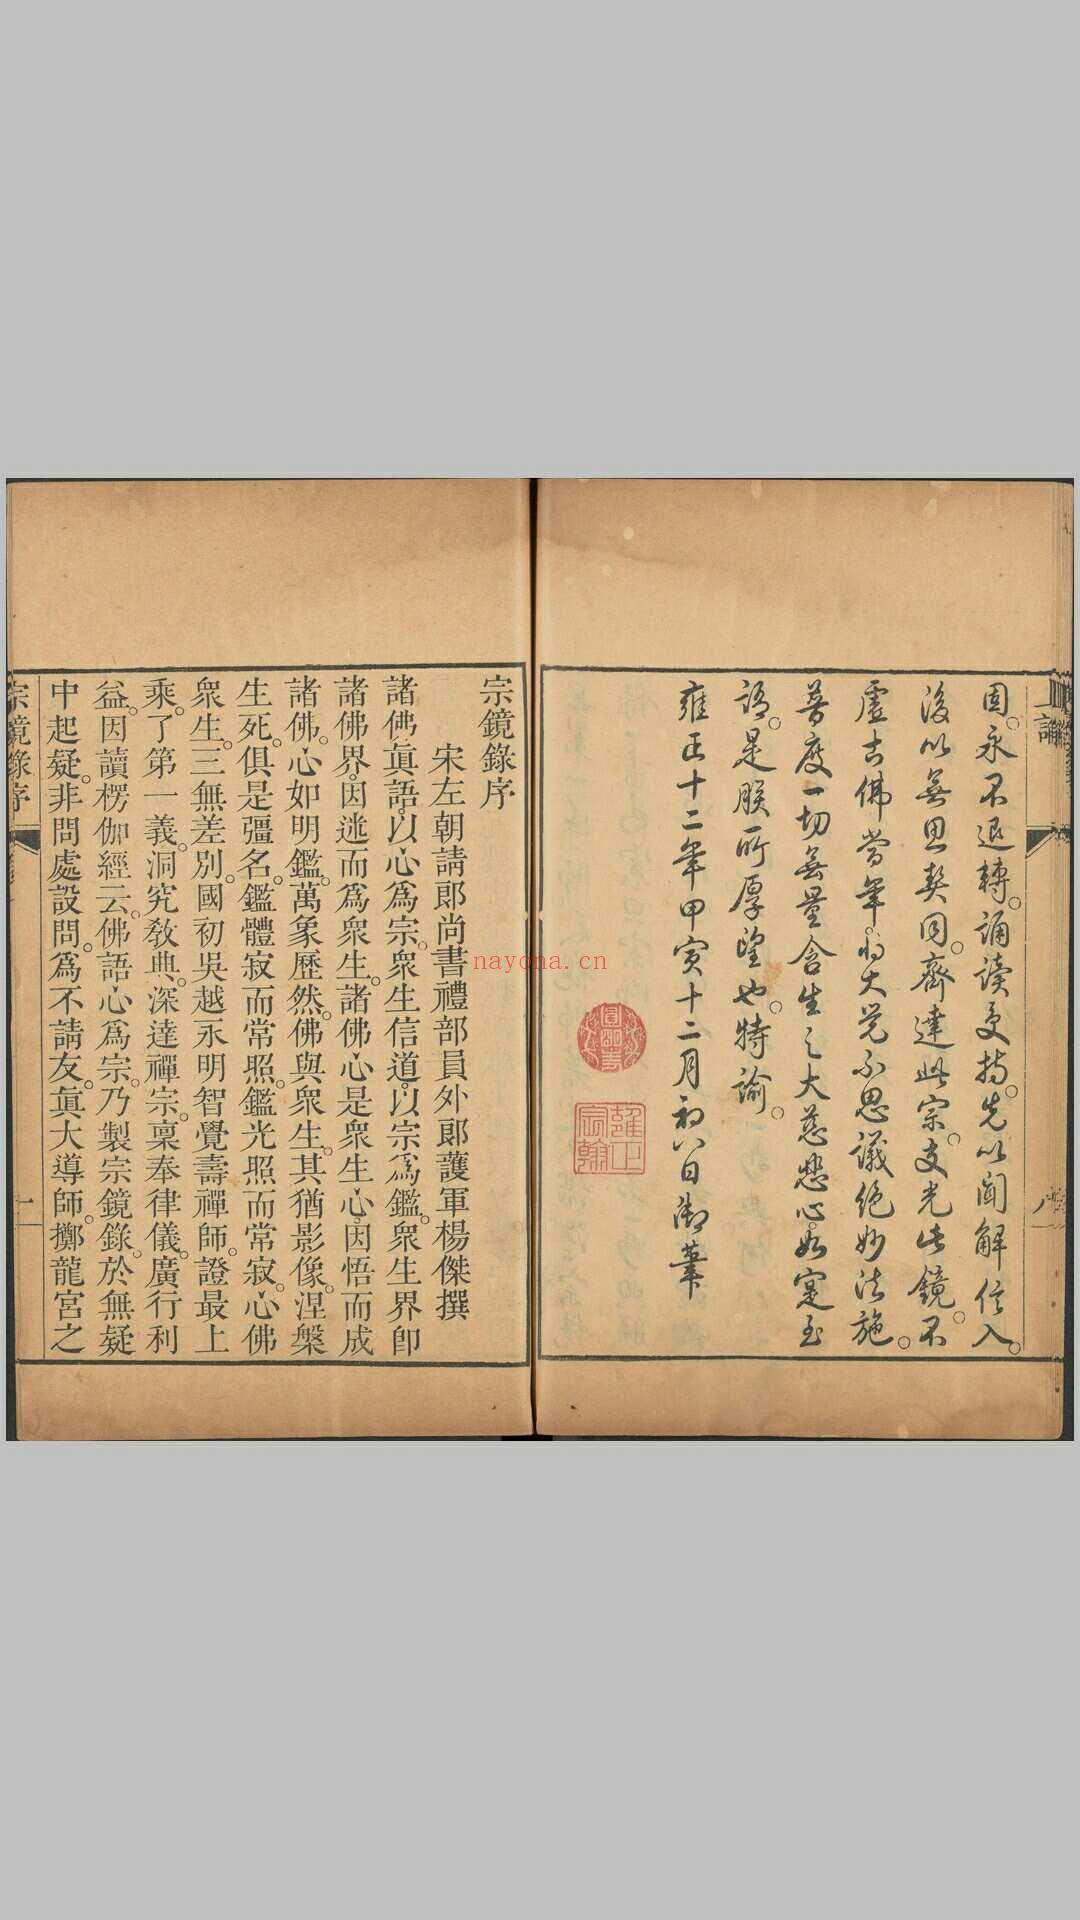 上諭
八
固。永不退轉。誦讀受持。先以聞解信入。
後以無思契同。齊達此宗。交光此鏡。不
虛古佛當年。以大覺不思議絕妙法施。
普度一切無量含生之大慈悲心。如寔至
語。是朕所厚望也。特諭。
雍正十二年甲寅十二月初八日御筆
圓明主人
雍正宸翰
nayona.cn
宗鏡錄序
宋左朝請郎尚書禮部員外郎護軍楊傑撰
諸佛眞語。以心爲宗。衆生信道。以宗爲鑑。衆生界卽
諸佛界。因迷而爲衆生。諸佛心是衆生心。因悟而成
諸佛。心如明鑑。萬象歷然。佛與衆生。其猶影像。涅槃
生死。俱是彊名。鑑體寂而常照。鑑光照而常寂。心佛
衆生。三無差別。國初吳越永明智覺壽禪師。證最上
乘。了第一義。洞究教典。深達禪宗。稟奉律儀。廣行利
益。因讀楞伽經云。佛語心爲宗。乃製宗鏡錄。於無疑
中起疑。非問處設問。爲不請友。眞大導師。擲龍宮之
宗鏡錄序
一